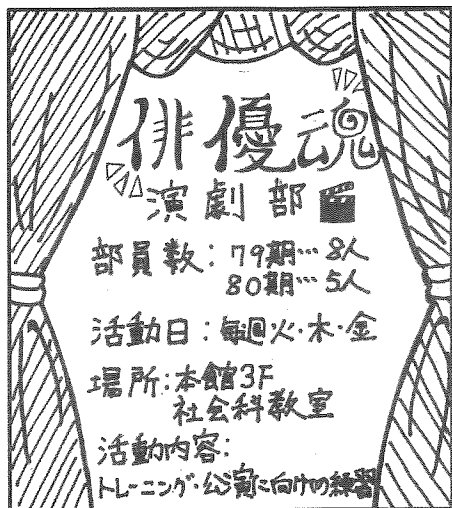 俳優魂
演劇部
部員数：79期…8人
80期…5人
活動日：毎週火・木・金
場所：本館3F
社会科教室
活動内容：
トレーニング・公演に向けの練習